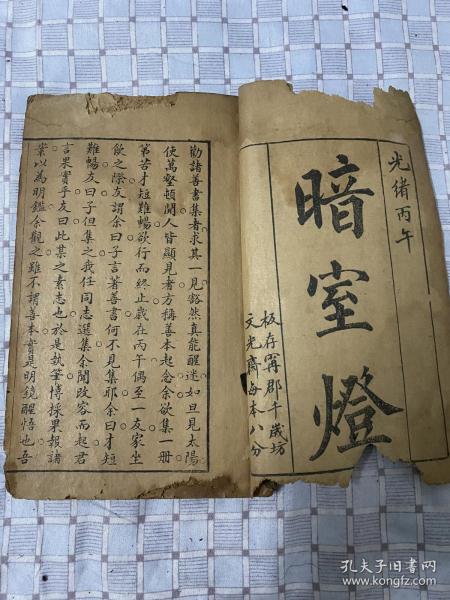 光緒丙午
暗室燈
板存甯郡千歲坊
文光齋每本八分
勸諸善書集者求其一見豁然真能醒迷如旦見太陽
使萬壑頓開人皆顯見者方稱善本起念余欲集一冊
第苦才短難暢欲行而終止歲在丙午偶至一友家坐
飲之際友謂余曰子言著善書何不見集耶余曰才短
難暢友曰子但集之我任同志選集余聞改容而起君
言果實乎友曰此某之素志也於是執筆博採果報諸
業以為明鑑余觀之雖不謂善本實是明鏡醒悟也吾
孔夫子旧书网
www.kongfz.com